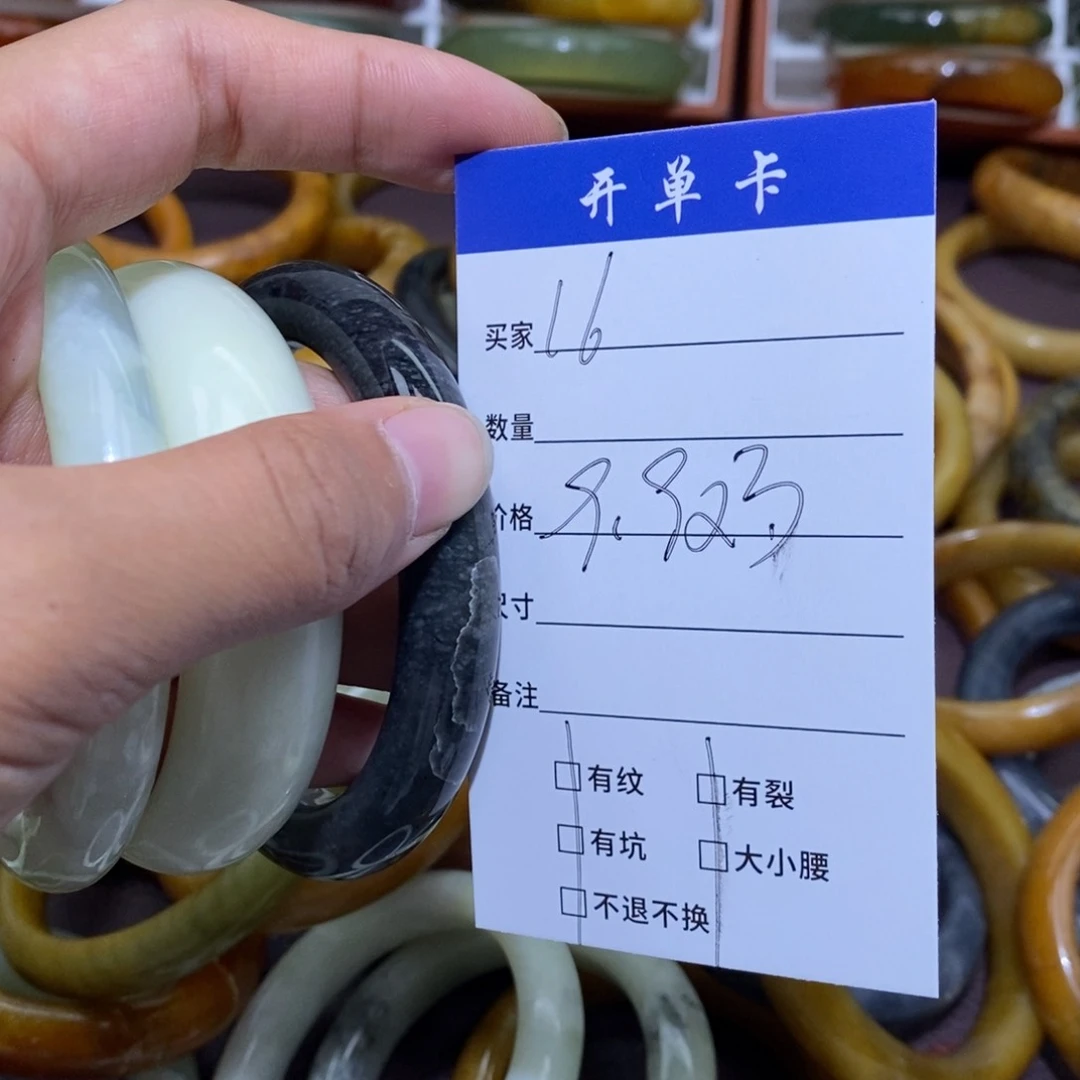 开单卡
买家 16
数量
价格
尺寸
备注
有纹 有裂
有坑 大小腰
不退不换